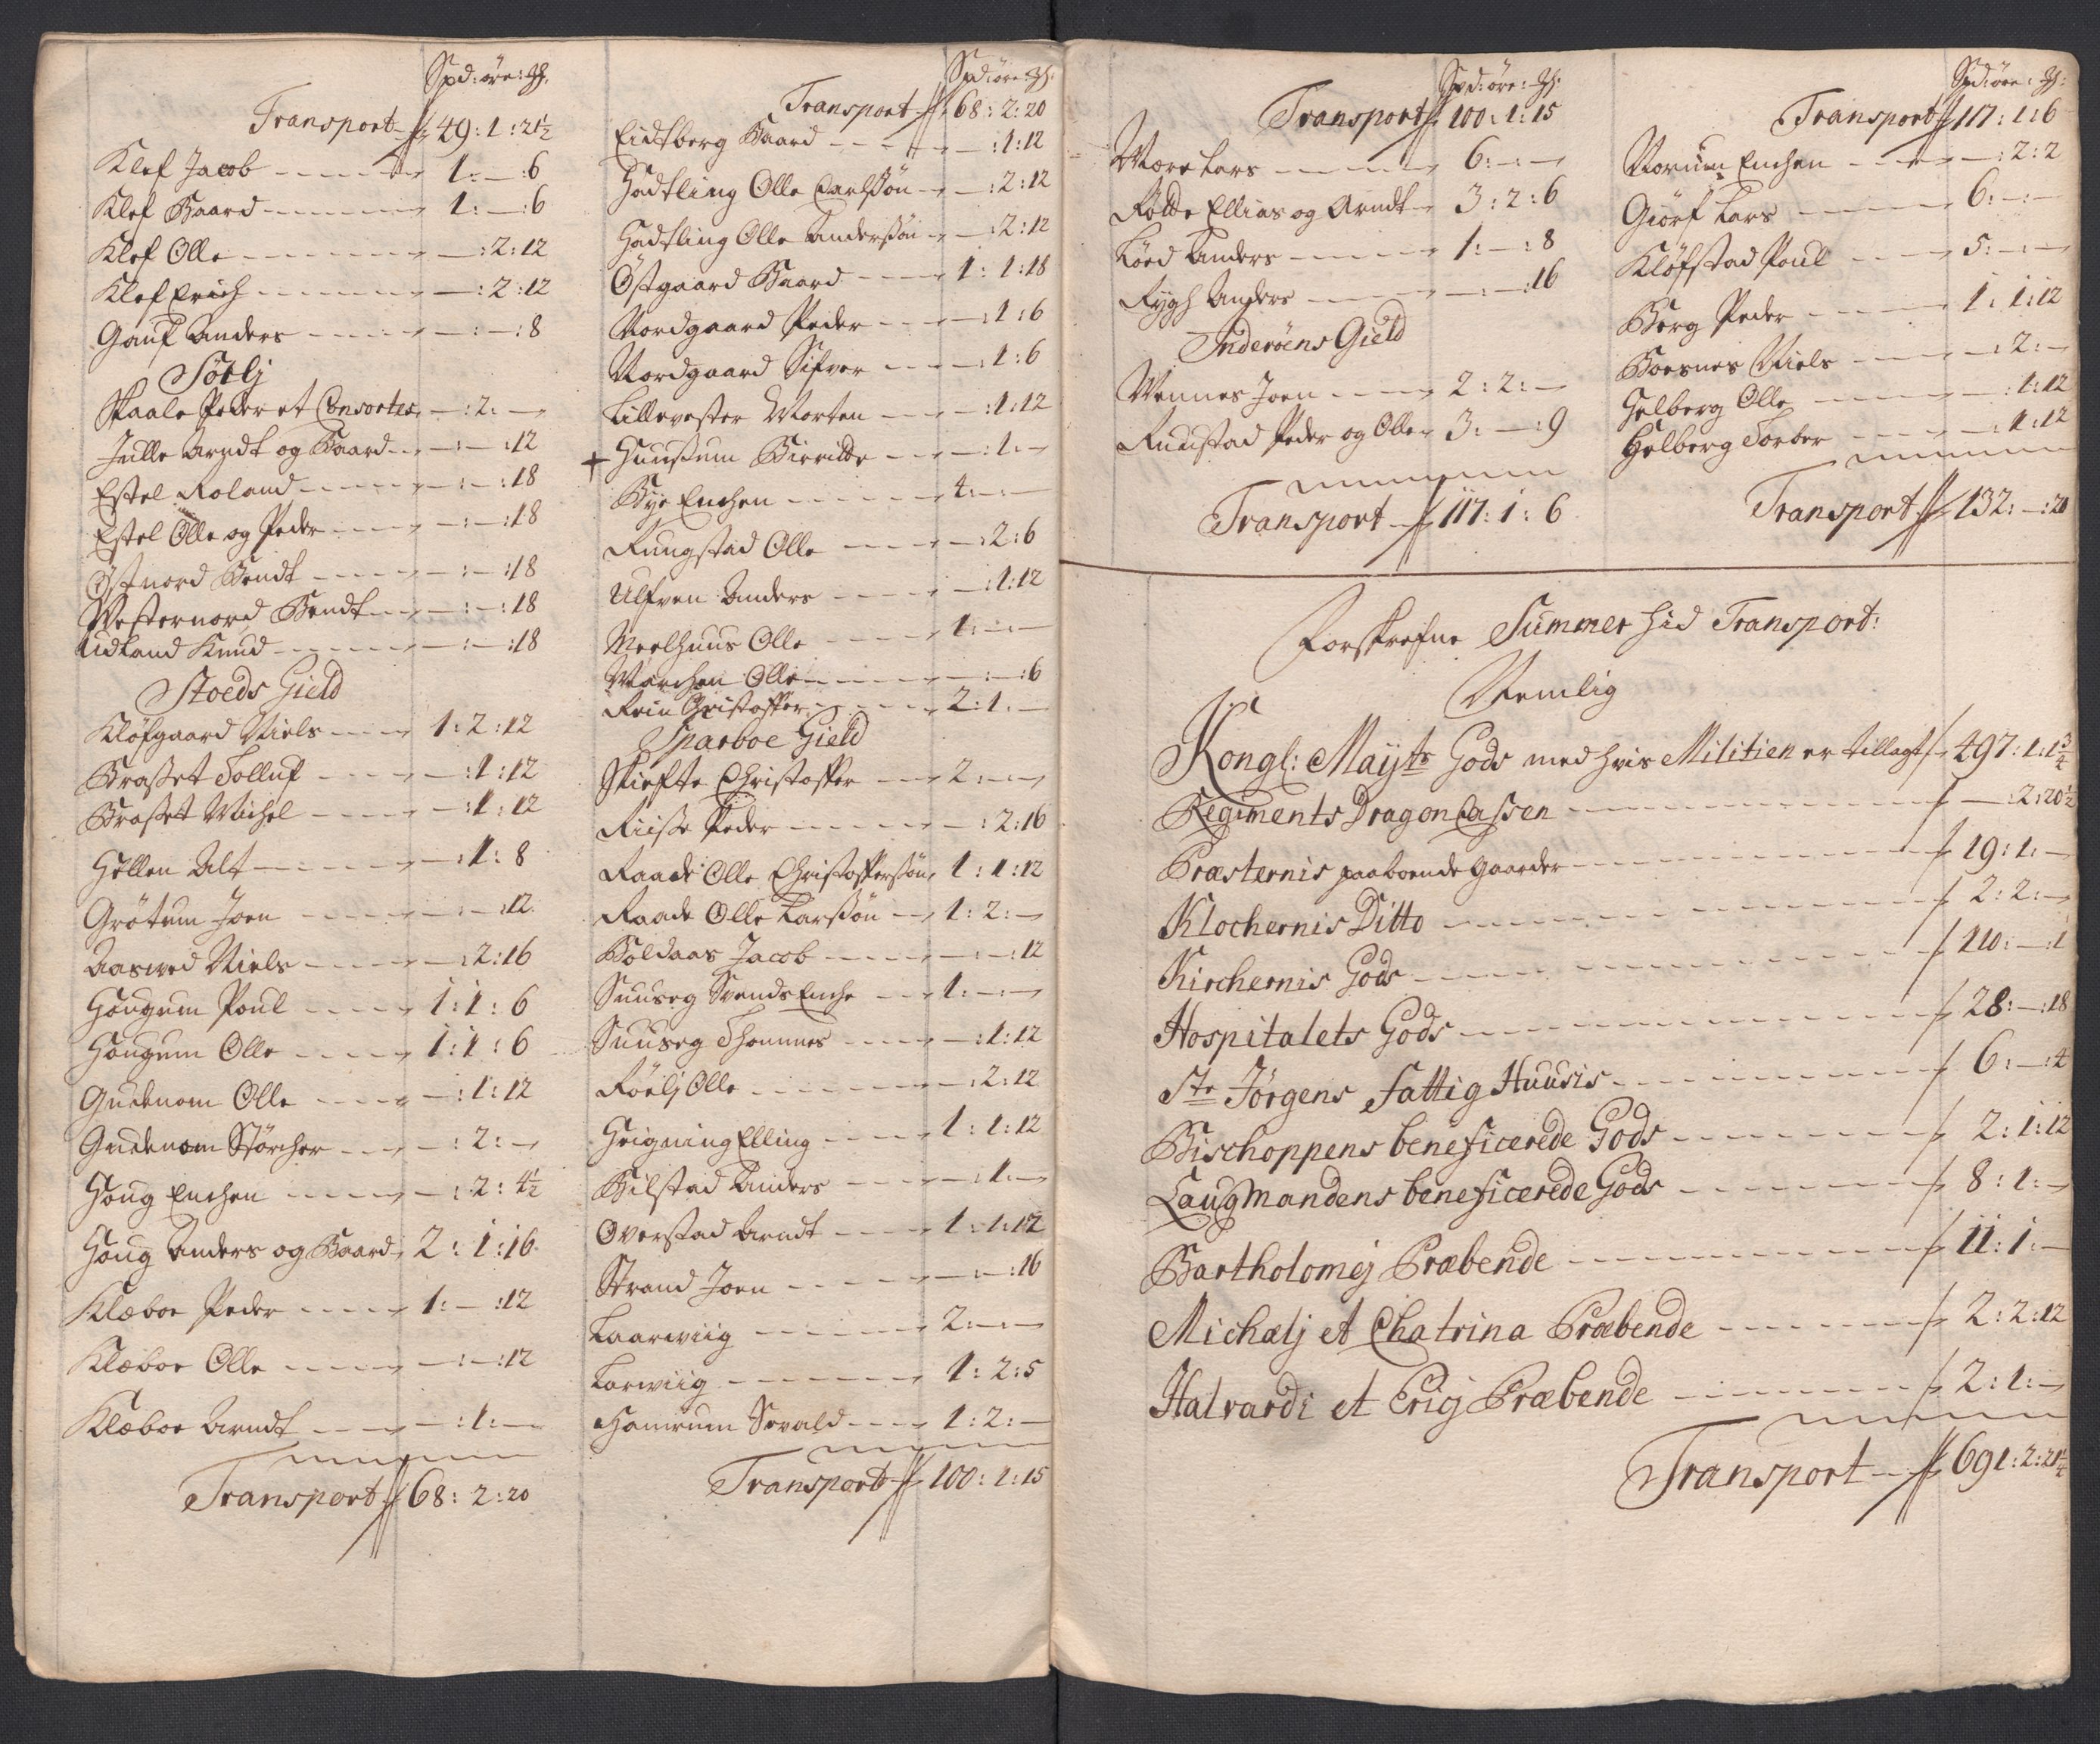 Spd: øre: ß.
Transport 49: 1: 21½
Klef Jacob 1: — : 6
Klef Baard 1: — : 6
Klef Olle — : 2: 12
Klef Erich — : 2: 12
Gauf Anders — : — : 8
Sørlj
Skaale Peder et Consortes — : 2: —
Julle Arndt og Baard — : — : 12
Estel Roland — : — : 18
Estel Olle og Peder — : — : 18
Østnord Bendt — : — : 18
Westernord Bendt — : — : 18
Lidland Knud — : — : 18
Stoeds Gield
Kløfgaard Niels 1: 2: 12
Brasset Tolluf — : 1: 12
Brasset Michel — : 1: 12
Hellen Alf — : 1: 8
Grøtum Joen — : — : 12
Aaswed Niels — : 2: 16
Hougum Poul 1: 1: 6
Hougum Olle 1: 1: 6
Gudenom Olle — : 1: 12
Gudenom Størcher — : 2: —
Houg Enchen — : 2: 4½
Houg Anders og Baard 2: 1: 16
Klæboe Peder 1: — : 12
Klæboe Olle — : — : 12
Klæboe Arndt — : 1: —
Transport 68: 2: 20
Spd: øre: ß:
Transport 68: 2: 20
Eidtberg Baard — : 1: 12
Hadtling Olle Carlssøn — : 2: 12
Hadtling Olle Anderssøn — : 2: 12
Østgaard Baard 1: 1: 18
Nordgaard Peder — : 1: 6
Nordgaard Sifver — : 1: 6
Lillevester Morten — : 1: 12
+ Huussum Birritte — : 1: —
Bye Enchen 4: — : —
Rungstad Olle — : 2: 6
Ulfven Anders — : 1: 12
Meelhuus Olle 1: — : —
Marchen Olle — : — : 6
Rein Christopher 2: 1: —
Sparboe Gield
Skiefte Christopher 2: — : —
Riisse Peder — : 2: 16
Raade Olle Christopherssøn 1: 1: 12
Raade Olle Larssøn 1: 2: —
Boldaas Jacob — : — : 12
Suuseg Svends Enche 1: — : —
Suuseg Thommes — : 1: 12
Røelj Olle — : 2: 12
Heigning Elling 1: 1: 12
Bilstad Anders — : 1: —
Overstad Arndt 1: 1: 12
Strand Joen — : — : 16
Laarwiig 2: — : —
Larwiig 1: 2: 5
Hamrum Sevald 1: 2: —
Transport 100: 1: 15
Spd: øre: ß:
Transport 100: 1: 15
Mære Lars 6: — : —
Følde Ellias og Arndt 3: 2: 6
Løed Anders 1: — : 8
Rygh Anders — : — : 16
Inderøens Gield
Wennes Joen 2: 2: —
Ruustad Peder og Olle 3: — : 9
Transport 117: 1: 6
Spd: øre: ß:
Transport 117: 1: 6
Norum Enchen — : 2: 2
Giørf Lars 6: — : —
Kløfstad Poul 5: — : —
Berg Peder 1: 1: 12
Boesnes Niels — : 2: —
Helberg Olle — : 1: 12
Helberg Torber — : 1: 12
Transport 132: — : 20
Forskrefne Summer hid Transport:
Nemlig
Kongl: Mayts Gods med hvis Militien er tillagt 497: 1: 1¾
Regiments Dragon Cassen — : 2: 20½
Præsternis paaboende gaarder 19: 1: —
Klochernis Ditto 2: 2: —
Kirchernis Gods 110: — : 1
Hospitalets Gods 28: — : 18
Ste Jørgens Fattig Huusis 6: — : 4
Bischoppens beneficerede Gods 2: 1: 12
Laugmandens beneficerede Gods 8: 1: —
Bartholomej Præbende 11: 1: —
Michælj et Chatrina Præbende 2: 2: 12
Halvardi et Erici Præbende 2: 1: —
Transport 691: 2: 21¼